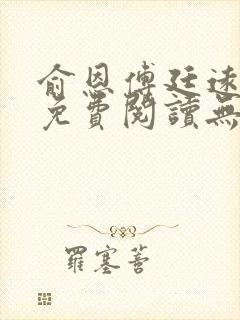 俞恩傅廷遠
免費閱讀無
羅塞菩